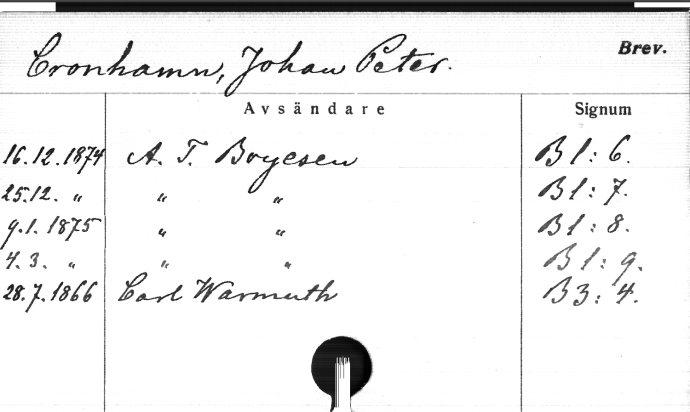 Cronhamn, Johan Peter. Brev.
Avsändare Signum
16.12.1874 A. T. Boyesen B 1: 6.
25.12. " " " B 1: 7.
9.1. 1875 " " B 1: 8.
4.3. " " " B 1: 9.
28.7.1866 Carl Warmuth B 3: 4.